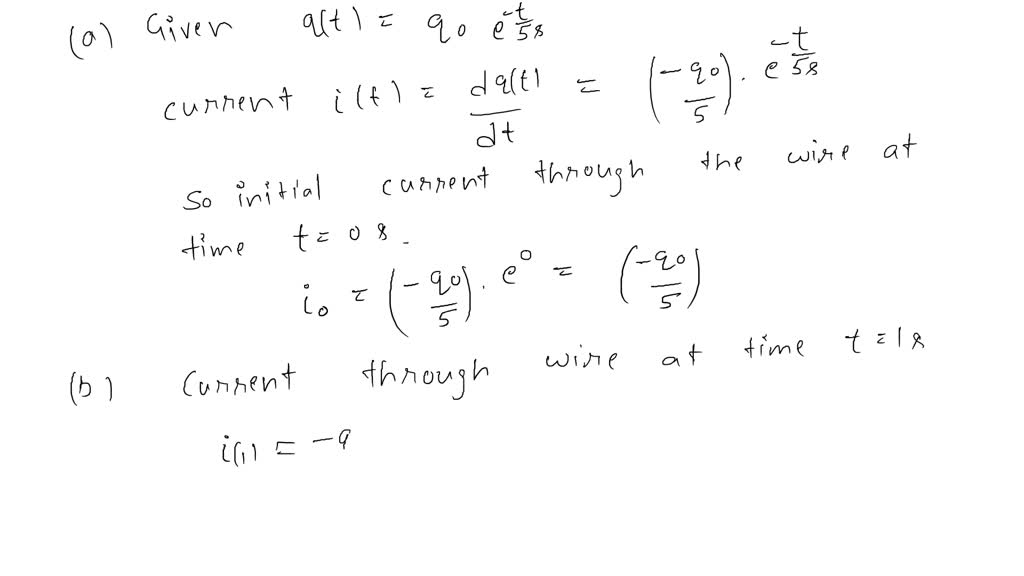 (a) Given q(t) = q0 e^(-t/5s)
current i(t) = dq(t)/dt = (-q0/5) . e^(-t/5s)
So initial current through the wire at
time t = 0 s.
i0 = (-q0/5) . e^0 = (-q0/5)
(b) Current through wire at time t = 1 s
i(1) = -q